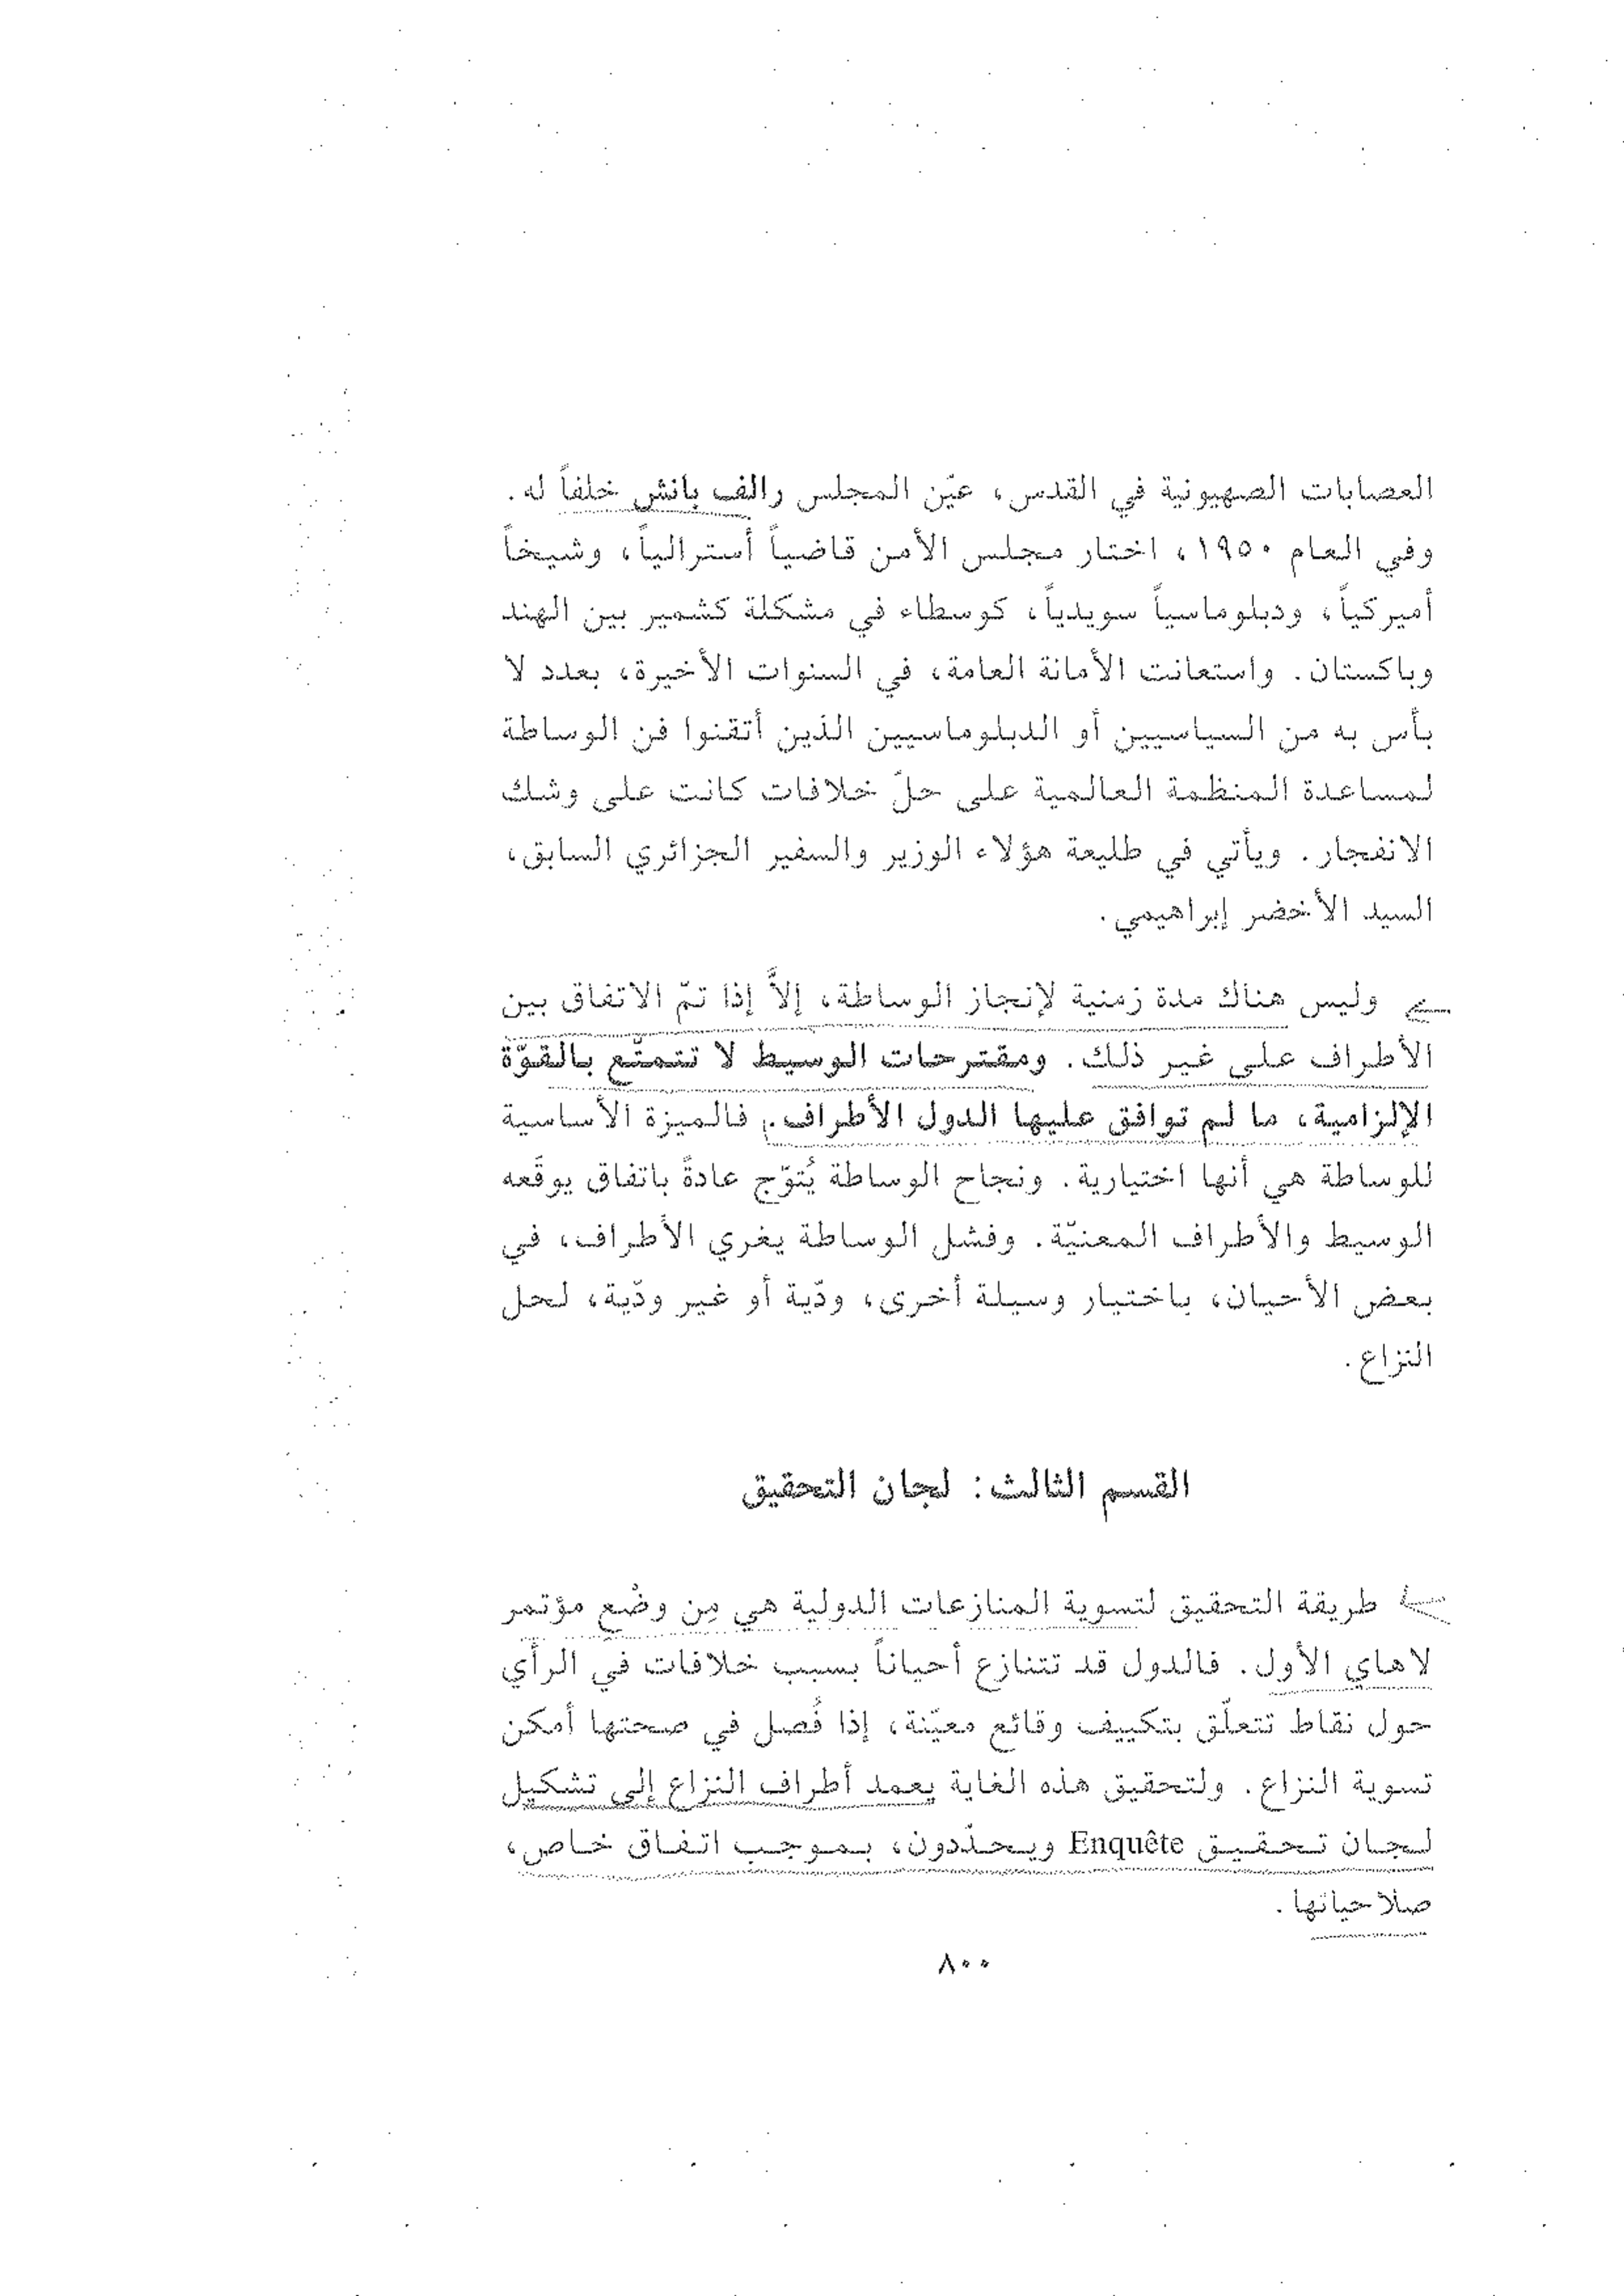 العصابات الصهيونية في القدس، عيّن المجلس رالف بانش خلفاً له.
وفي العام ١٩٥٠، اختار مجلس الأمن قاضياً أسترالياً، وشيخاً
أميركياً، ودبلوماسياً سويدياً، كوسطاء في مشكلة كشمير بين الهند
وباكستان. واستعانت الأمانة العامة، في السنوات الأخيرة، بعدد لا
بأس به من السياسيين أو الدبلوماسيين الذين أتقنوا فن الوساطة
لمساعدة المنظمة العالمية على حلّ خلافات كانت على وشك
الانفجار. ويأتي في طليعة هؤلاء الوزير والسفير الجزائري السابق،
السيد الأخضر إبراهيمي.
وليس هناك مدة زمنية لإنجاز الوساطة، إلاَّ إذا تمّ الاتفاق بين
الأطراف على غير ذلك. ومقترحات الوسيط لا تتمتّع بالقوّة
الإلزامية، ما لم توافق عليها الدول الأطراف. فالميزة الأساسية
للوساطة هي أنها اختيارية. ونجاح الوساطة يُتوّج عادةً باتفاق يوقّعه
الوسيط والأطراف المعنيّة. وفشل الوساطة يغري الأطراف، في
بعض الأحيان، باختيار وسيلة أخرى، ودّية أو غير ودّية، لحل
النزاع.
القسم الثالث: لجان التحقيق
طريقة التحقيق لتسوية المنازعات الدولية هي مِن وضْع مؤتمر
لاهاي الأول. فالدول قد تتنازع أحياناً بسبب خلافات في الرأي
حول نقاط تتعلّق بتكييف وقائع معيّنة، إذا فُصل في صحتها أمكن
تسوية النزاع. ولتحقيق هذه الغاية يعمد أطراف النزاع إلى تشكيل
لجان تحقيق Enquête ويحدّدون، بموجب اتفاق خاص،
صلاحياتها.
٨٠٠